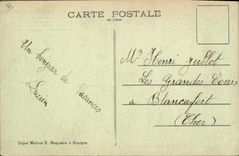 CARTE POSTALE
Un bonjour de Vacances
Lucien
Mr Henri Jullot
Les Grandes Cours
à Blancafort
(Cher)
Dépôt Maison E. Maquaire à Bourges